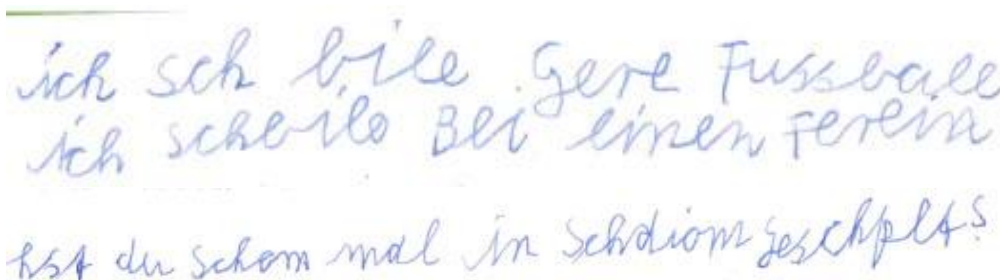 ich sch bile Gere Fussball
ich scheile Bei einen ferein
hst du schom mal in schdiom geschplt?